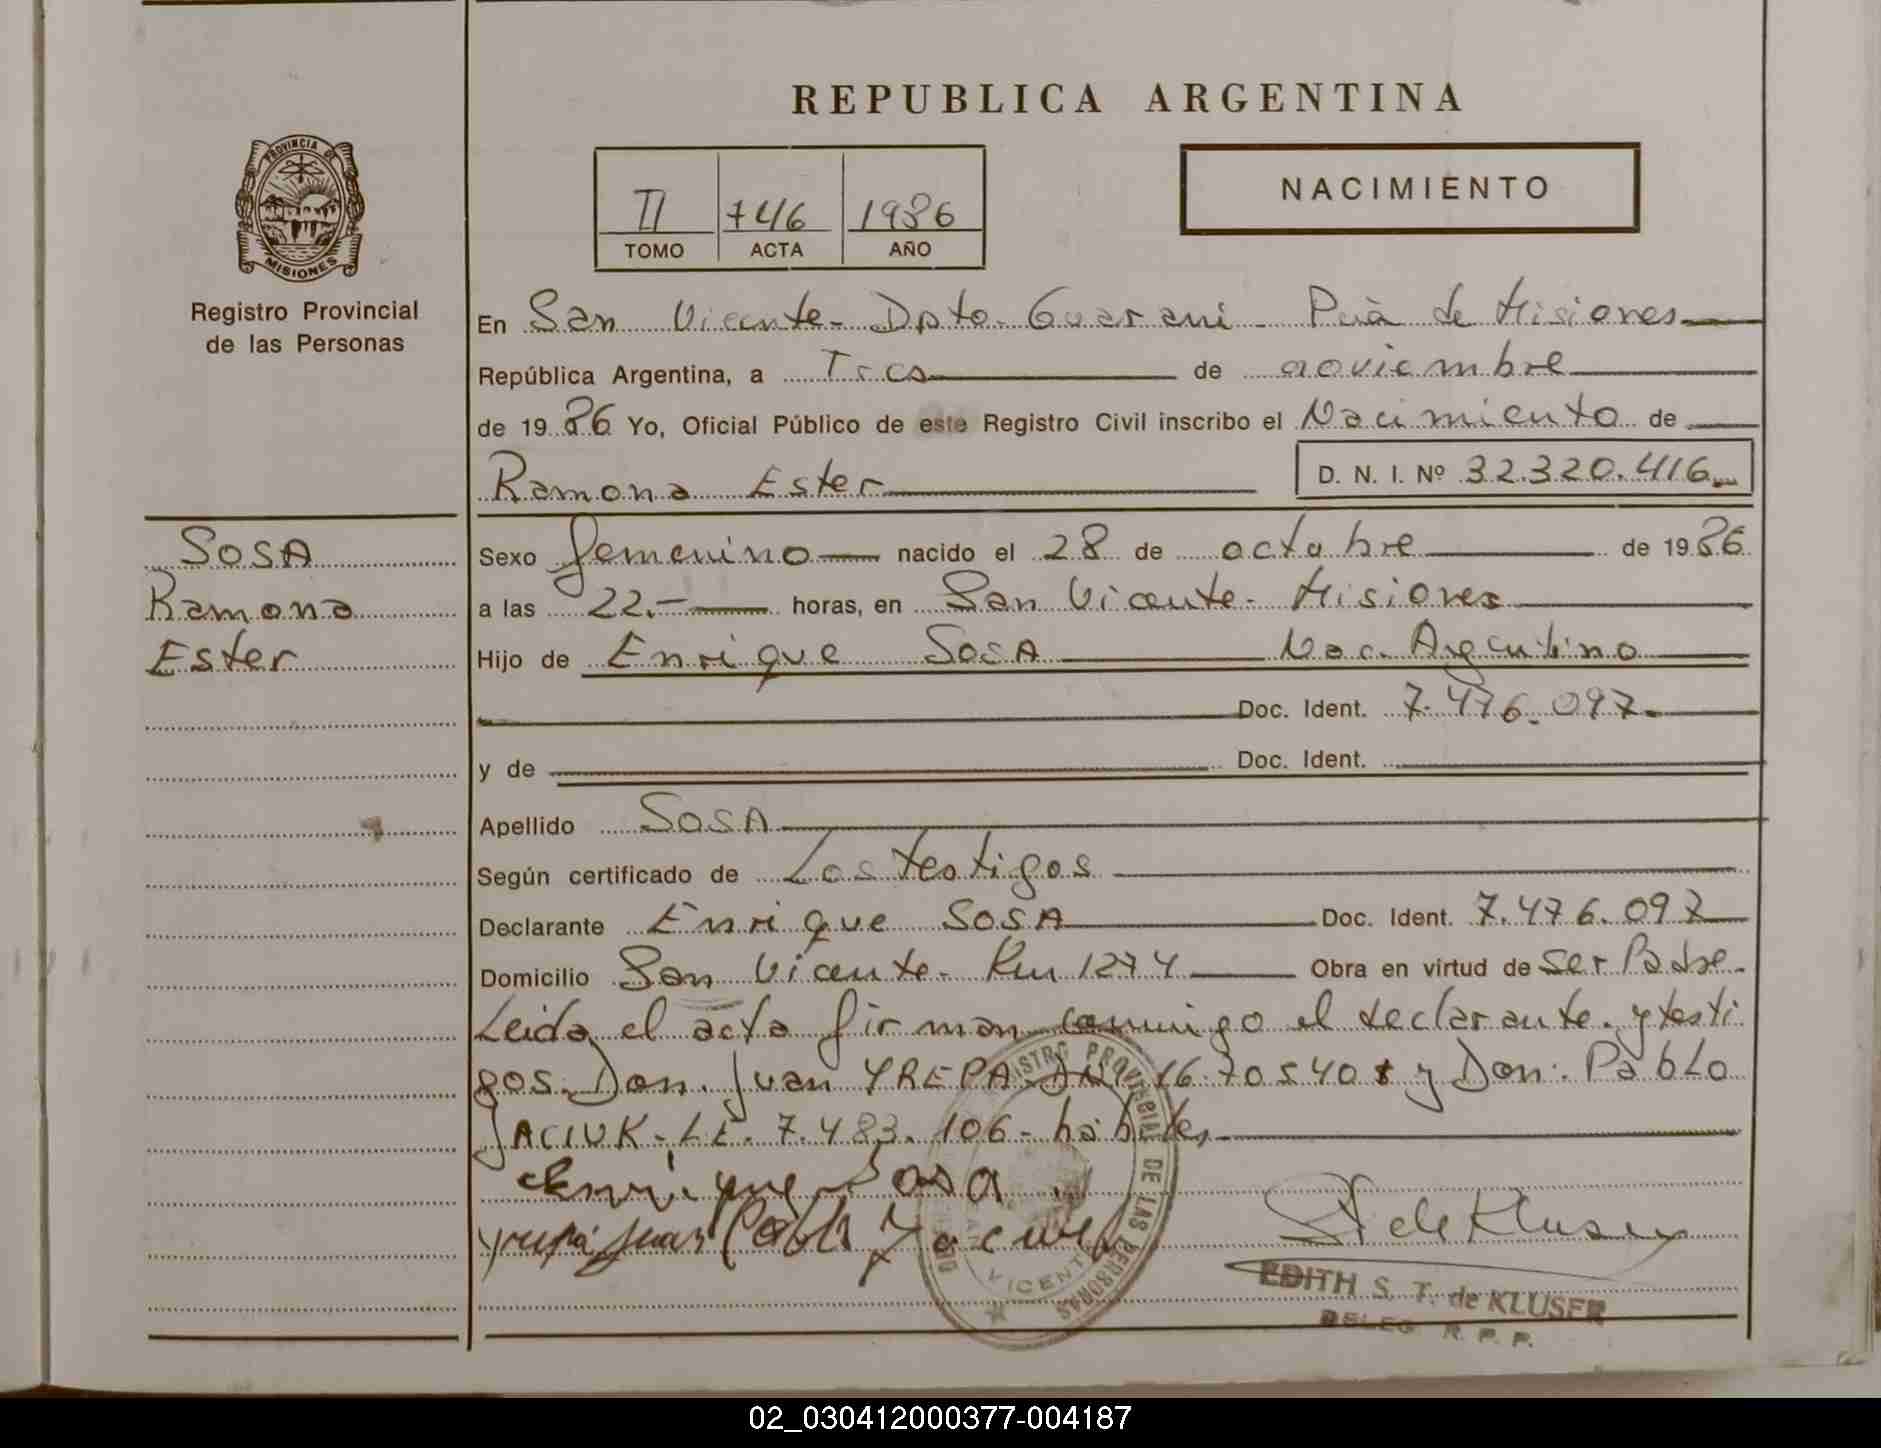 REPUBLICA ARGENTINA
PROVINCIA DE
MISIONES
Registro Provincial
de las Personas
II 746 1986
TOMO ACTA AÑO
NACIMIENTO
En San Vicente - Dpto. Guarani - Pcia de Misiones
República Argentina, a Tres de noviembre
de 1986 Yo, Oficial Público de este Registro Civil inscribo el Nacimiento de
Ramona Ester D. N. I. Nº 32.320.416
SOSA
Ramona
Ester
Sexo femenino nacido el 28 de octubre de 1986
a las 22.- horas, en San Vicente - Misiones
Hijo de Enrique SOSA Nac. Argentino
Doc. Ident. 7.476.097.
y de Doc. Ident.
Apellido SOSA
Según certificado de Los testigos
Declarante Enrique SOSA Doc. Ident. 7.476.097
Domicilio San Vicente - Km 1274 Obra en virtud de ser Padre.
Leida el acta firman conmigo el declarante. y testi
gos. Don. Juan YREPA DNI 16.70540 y Don. Pablo
JACIUK - LE. 7.483.106 - hábiles
Enrique Sosa
Yrepa Juan Pablo Jaciuk
REGISTRO PROVINCIAL DE LAS PERSONAS
VICENTE
E de Kluser
EDITH S. T. de KLUSER
DELEG R. P. P.
02_030412000377-004187